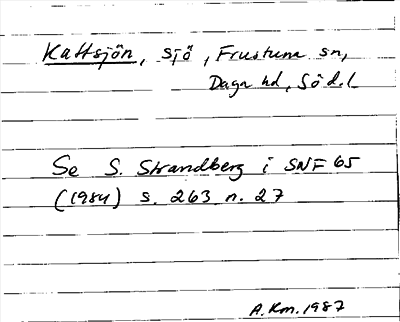 Kattsjön, sjö, Frustuna sn,
Daga hd, Söd.l
Se S. Strandberg i SNF 65
(1984) s. 263 n. 27
A.Km. 1987